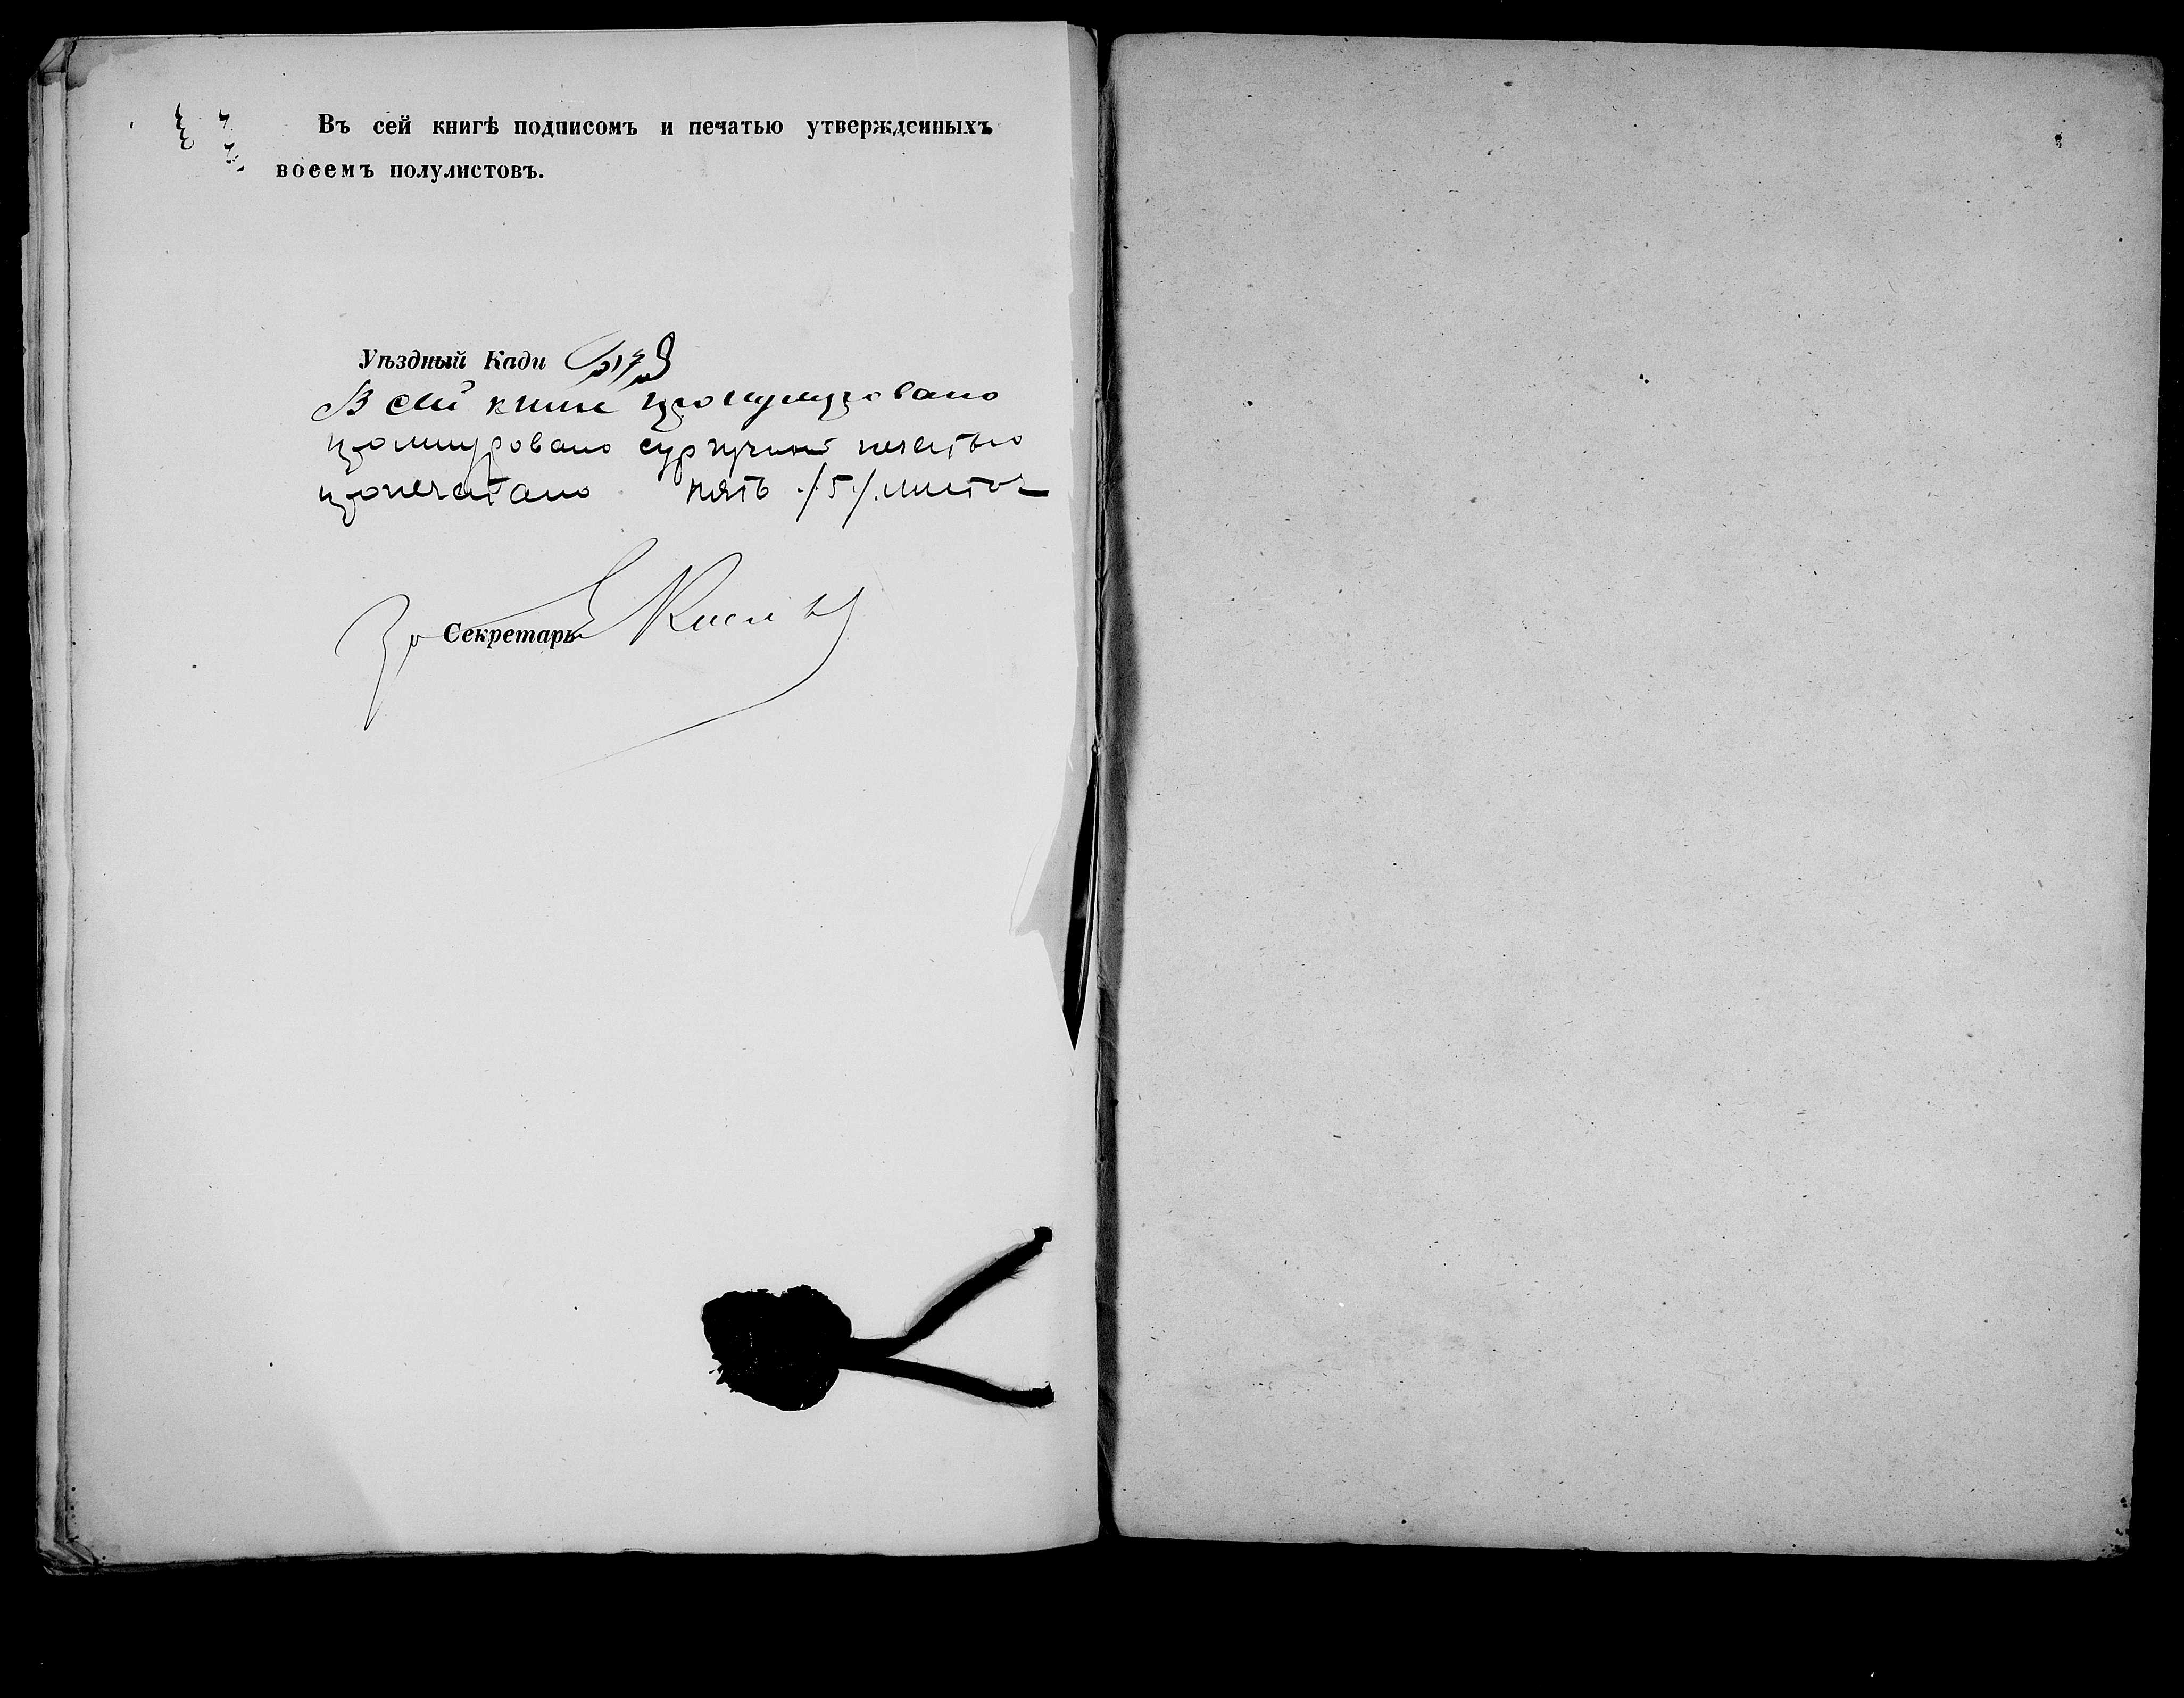 Въ сей книгѣ подписомъ и печатью утвержденныхъ
восемъ полулистовъ.
Уѣздный Кади
В сей книге пронумеровано
прошнуровано сургучной печатью
пропечатано пять /5/ листов
За Секретарь